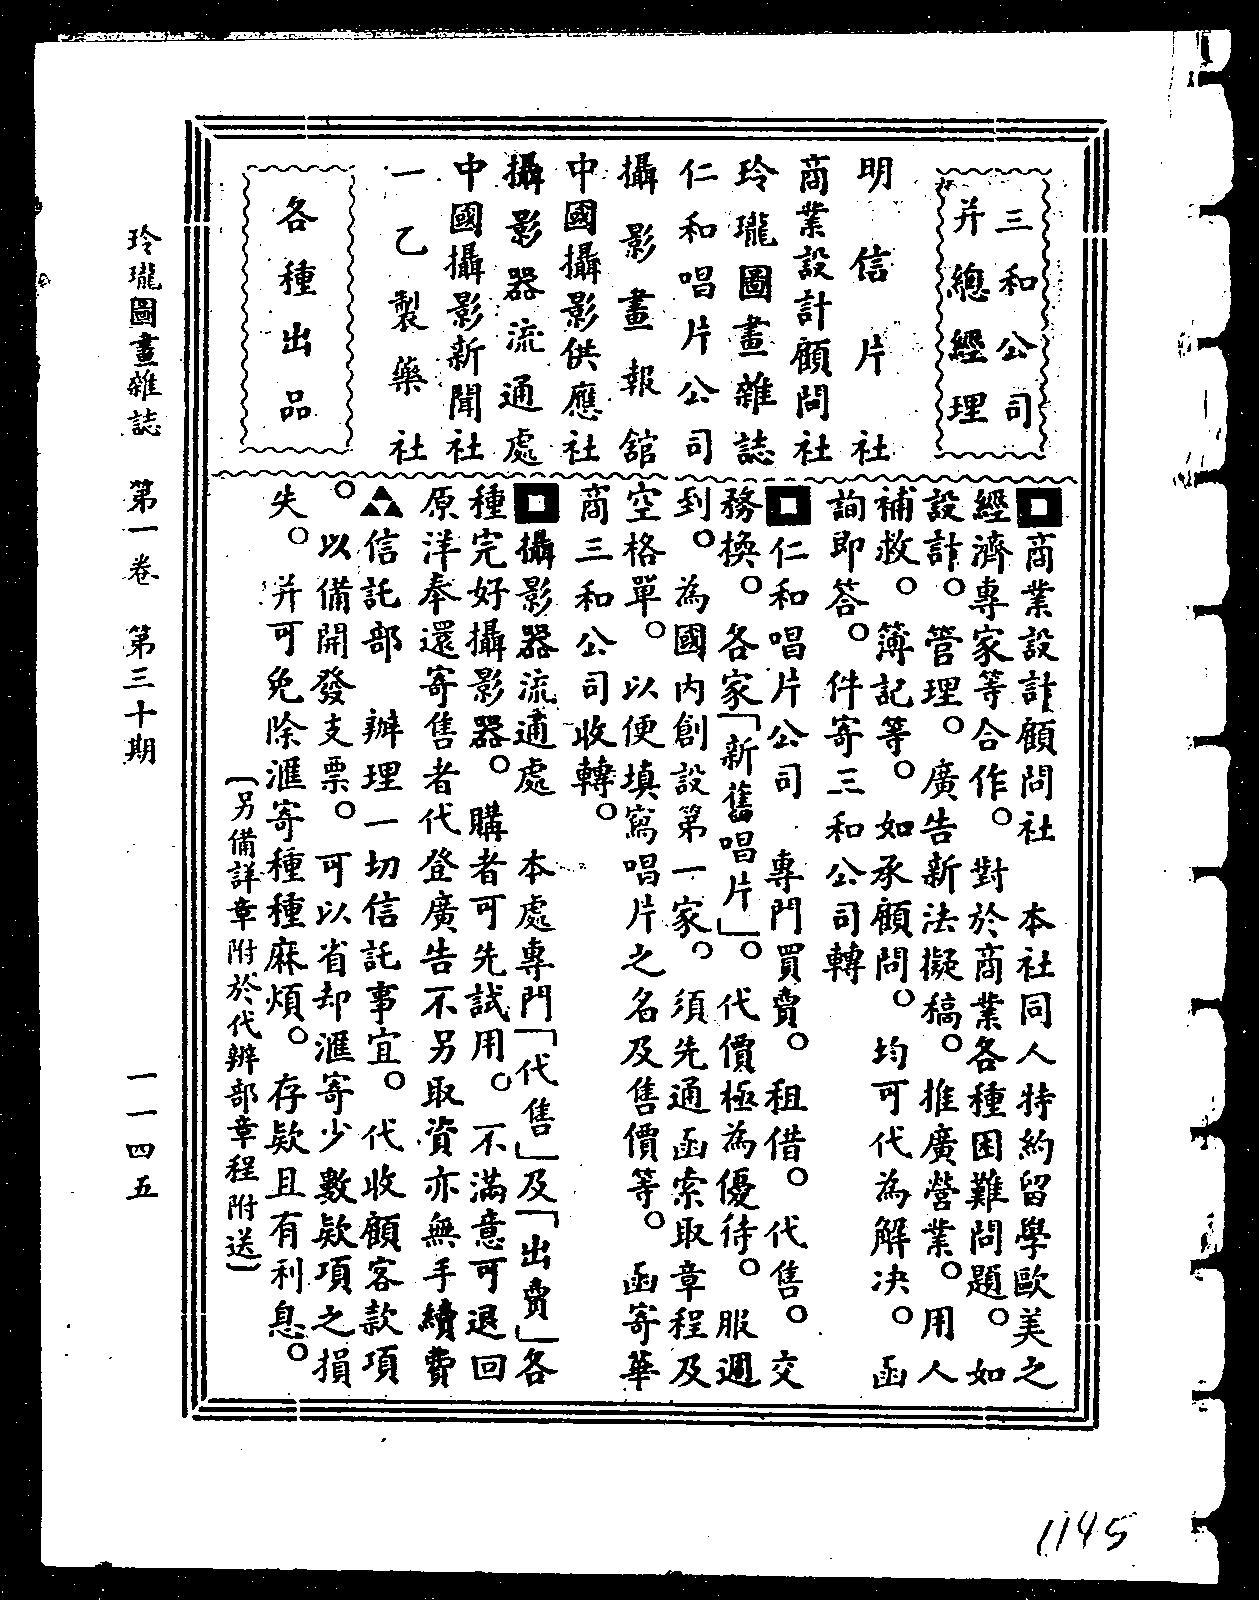 三和公司
并總經理
明信片社
商業設計顧問社
玲瓏圖畫雜誌
仁和唱片公司
攝影畫報館
中國攝影供應社
攝影器流通處
中國攝影新聞社
一乙製藥社
各種出品
商業設計顧問社　本社同人特約留學歐美之
經濟專家等合作。對於商業各種困難問題。如
設計。管理。廣告新法擬稿。推廣營業。用人
補救。簿記等。如承顧問。均可代為解决。函
詢即答。件寄三和公司轉
仁和唱片公司　專門買賣。租借。代售。交
務換。各家「新舊唱片」。代價極為優待。服週
到。為國內創設第一家。須先通函索取章程及
空格單。以便填寫唱片之名及售價等。函寄華
商三和公司收轉。
攝影器流通處　本處專門「代售」及「出賣」各
種完好攝影器。購者可先試用。不滿意可退回
原洋奉還寄售者代登廣告不另取資亦無手續費
信託部　辦理一切信託事宜。代收顧客款項
。以備開發支票。可以省却滙寄少數欵項之損
失。并可免除滙寄種種麻煩。存欵且有利息。
〔另備詳章附於代辦部章程附送〕
玲瓏圖畫雜誌　第一卷　第三十期　一一四五
1145